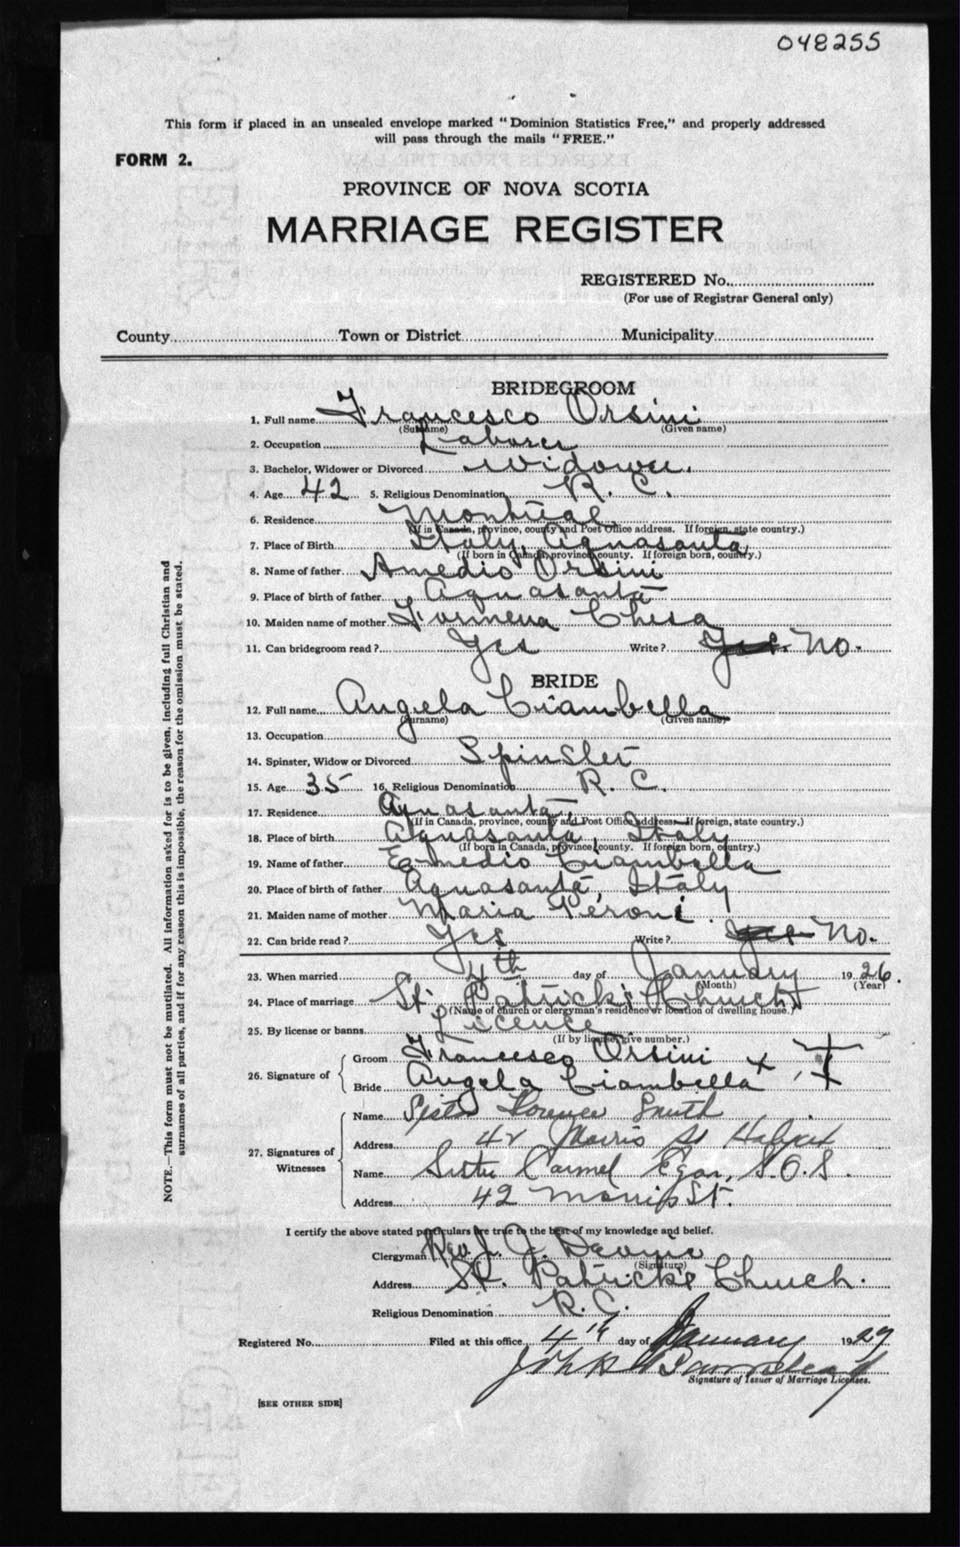 048255
This form if placed in an unsealed envelope marked "Dominion Statistics Free," and properly addressed
will pass through the mails "FREE."
FORM 2.
PROVINCE OF NOVA SCOTIA
MARRIAGE REGISTER
REGISTERED No.
(For use of Registrar General only)
County Town or District Municipality
BRIDEGROOM
1. Full name Francesco Orsini
(Surname) (Given name)
2. Occupation Laborer
3. Bachelor, Widower or Divorced Widower.
4. Age 42 5. Religious Denomination R. C.
6. Residence Montreal.
(If in Canada, province, county and Post Office address. If foreign, state country.)
7. Place of Birth Italy, Aquasanta
(If born in Canada, province, county. If foreign born, country.)
8. Name of father Amedio Orsini
9. Place of birth of father Aquasanta
10. Maiden name of mother Chesa
11. Can bridegroom read? Yes Write? Yes. No.
BRIDE
12. Full name Angela Ciambella
(Surname) (Given name)
13. Occupation
14. Spinster, Widow or Divorced Spinster
15. Age 35 16. Religious Denomination R. C.
17. Residence Aquasanta
(If in Canada, province, county and Post Office address. If foreign, state country.)
18. Place of birth Aquasanta, Italy
(If born in Canada, province, county. If foreign born, country.)
19. Name of father Emedio Ciambella
20. Place of birth of father Aquasanta, Italy
21. Maiden name of mother Maria Peroni
22. Can bride read? Yes Write? Yes No.
23. When married 4th day of January 1926.
(Month) (Year)
24. Place of marriage St. Patrick's Church
(Name of church or clergyman's residence or location of dwelling house.)
25. By license or banns Licence
(If by license, give number.)
26. Signature of
Groom Francesco Orsini x
Bride Angela Ciambella
27. Signatures of Witnesses
Name Sister Florence Smith
Address 42 Morris St Halifax
Name Sister Carmel Egan, S.O.S.
Address 42 Morris St.
I certify the above stated particulars are true to the best of my knowledge and belief.
Clergyman Rev. J. J. Devine
(Signature)
Address St. Patrick's Church.
Religious Denomination R.C.
Registered No. Filed at this office 4th day of January 1927
John
Signature of Issuer of Marriage Licenses.
[SEE OTHER SIDE]
NOTE.—This form must not be mutilated. All information asked for is to be given, including full Christian and
surnames of all parties, and if for any reason this is impossible, the reason for the omission must be stated.